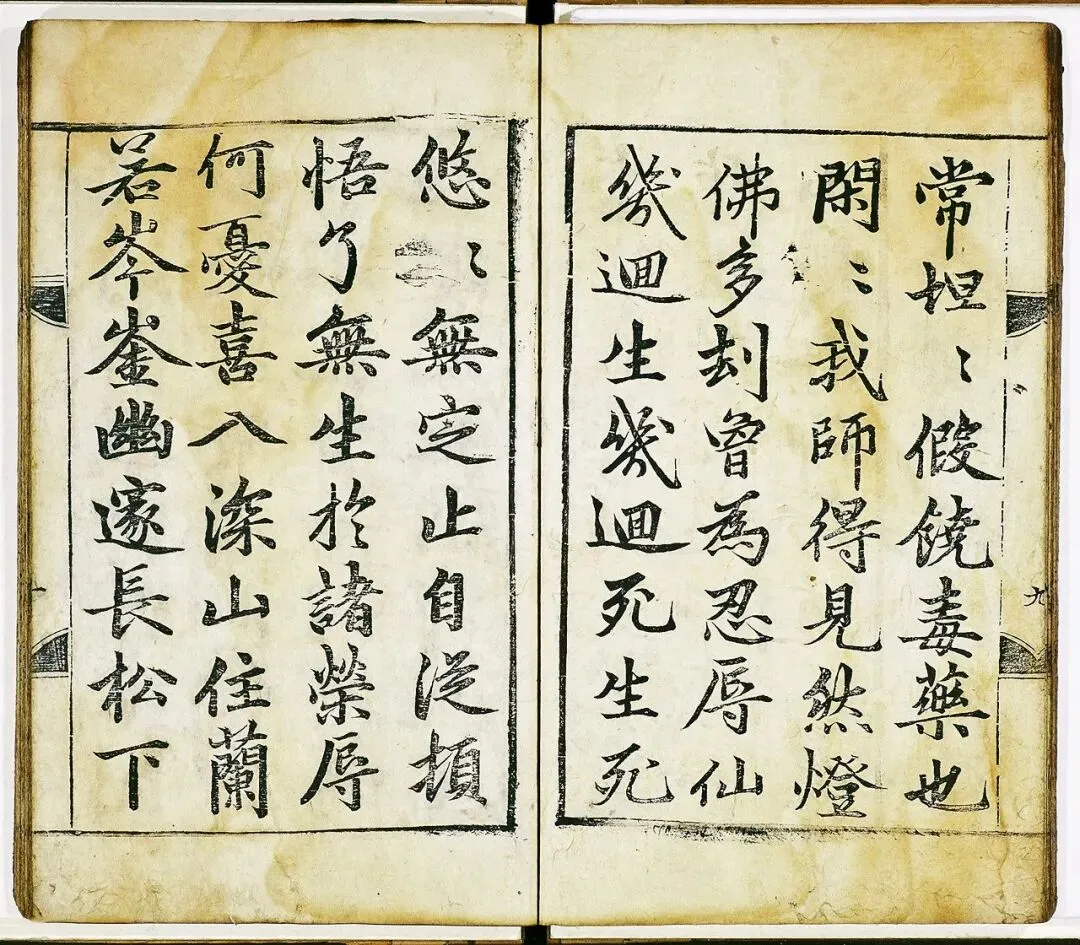 常坦〻假饒毒藥也
閑〻我師得見然燈
佛多刼曾為忍辱仙
幾迴生幾迴死生死
九
悠〻無定止自從頓
悟了無生於諸榮辱
何憂喜入深山住蘭
若岑崟幽邃長松下